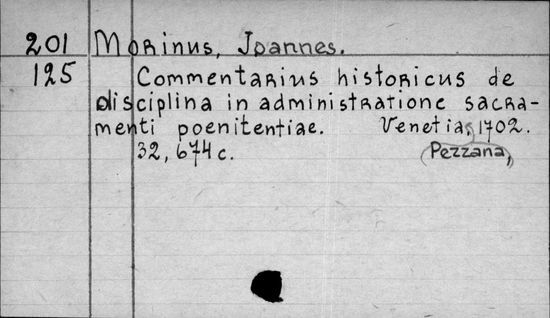 201 Morinus, Joannes.
125 Commentarius historicus de
disciplina in administratione sacra-
menti poenitentiae. Venetia, 1702.
32, 674 c. Pezzana,